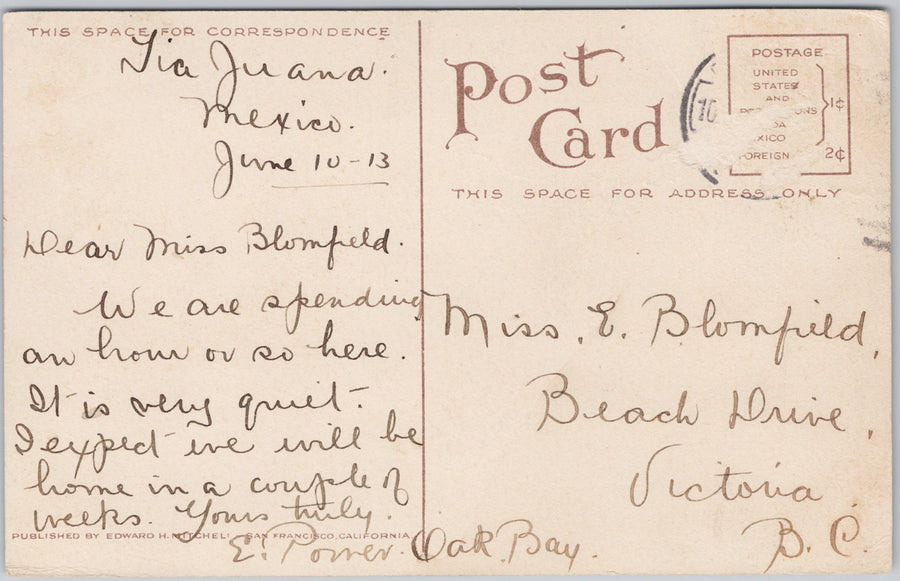 THIS SPACE FOR CORRESPONDENCE
Tia Juana.
Mexico.
June 10-13
Dear Miss Blomfield.
We are spending
an hour or so here.
It is very quiet.
I expect we will be
home in a couple of
weeks. Yours truly.
PUBLISHED BY EDWARD H. MITCHELL, SAN FRANCISCO, CALIFORNIA.
E. Power. Oak Bay.
Post
Card
10
POSTAGE
UNITED
STATES
AND
1¢
FOREIGN 2¢
THIS SPACE FOR ADDRESS ONLY
Miss. E. Blomfield,
Beach Drive,
Victoria
B.C.